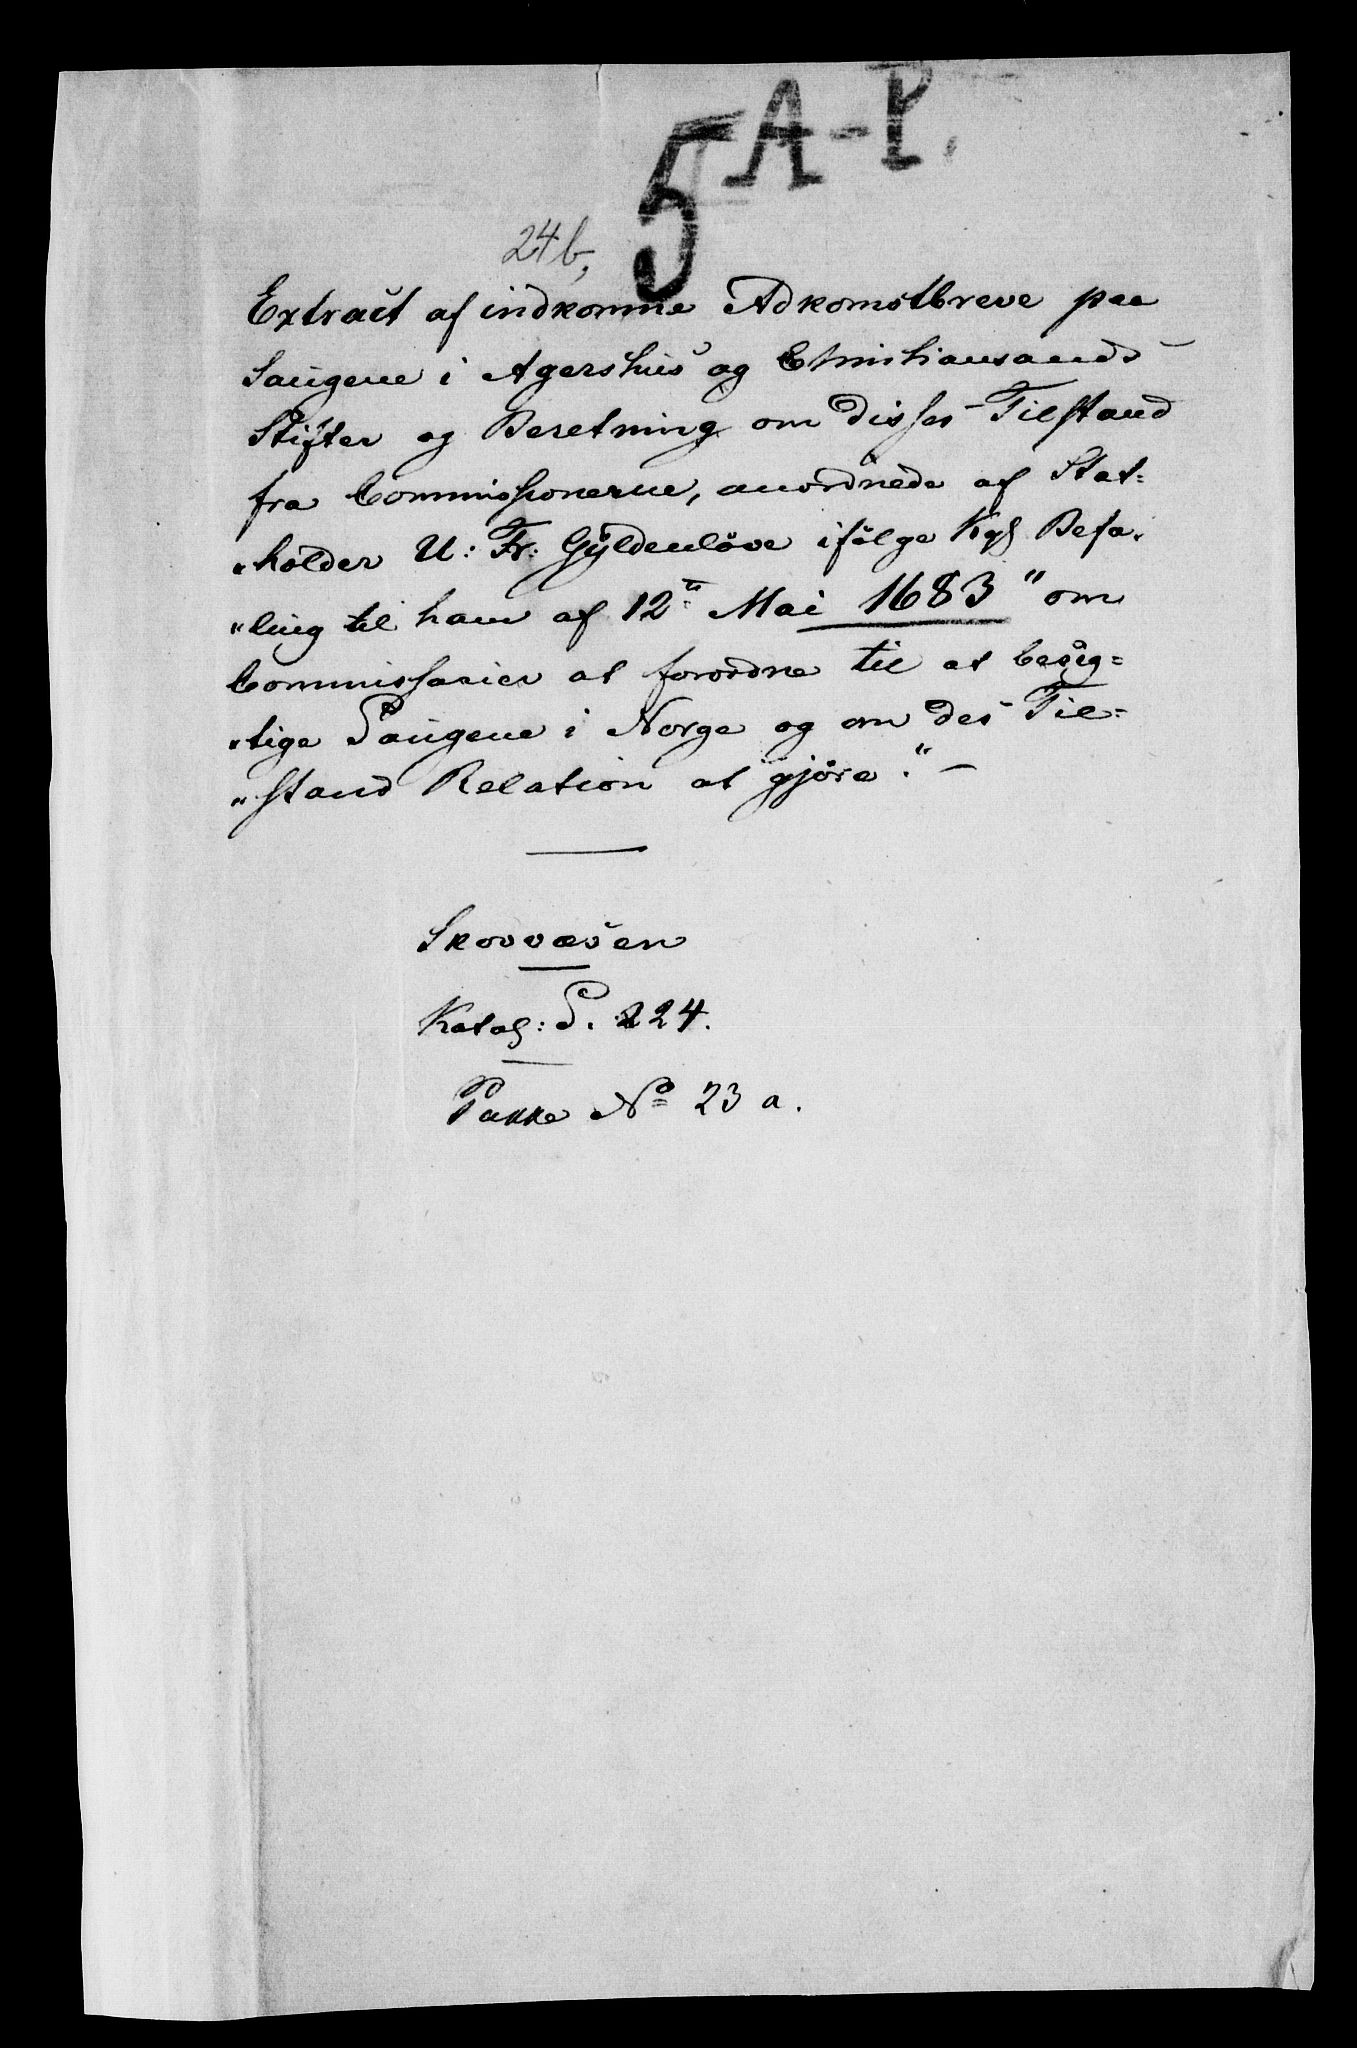 5 A-P.
24b,
Extract af indkomne Adkomstbreve paa
Saugene i Agershus og Christiansands
Stifter og Beretning om disses Tilstand
fra Commissionerne, anordnede af Stat=
„holder U: Fr: Gyldenløve ifølge Kgl Befa„
„ling til ham af 12te Mai 1683 " om
Commissarier at forordne til at besig=
„tige Saugene i Norge og om des Til=
„stand Relation at gjøre." –
Skovvæsen
Katal: P. 224.
Pakke No 23 a.